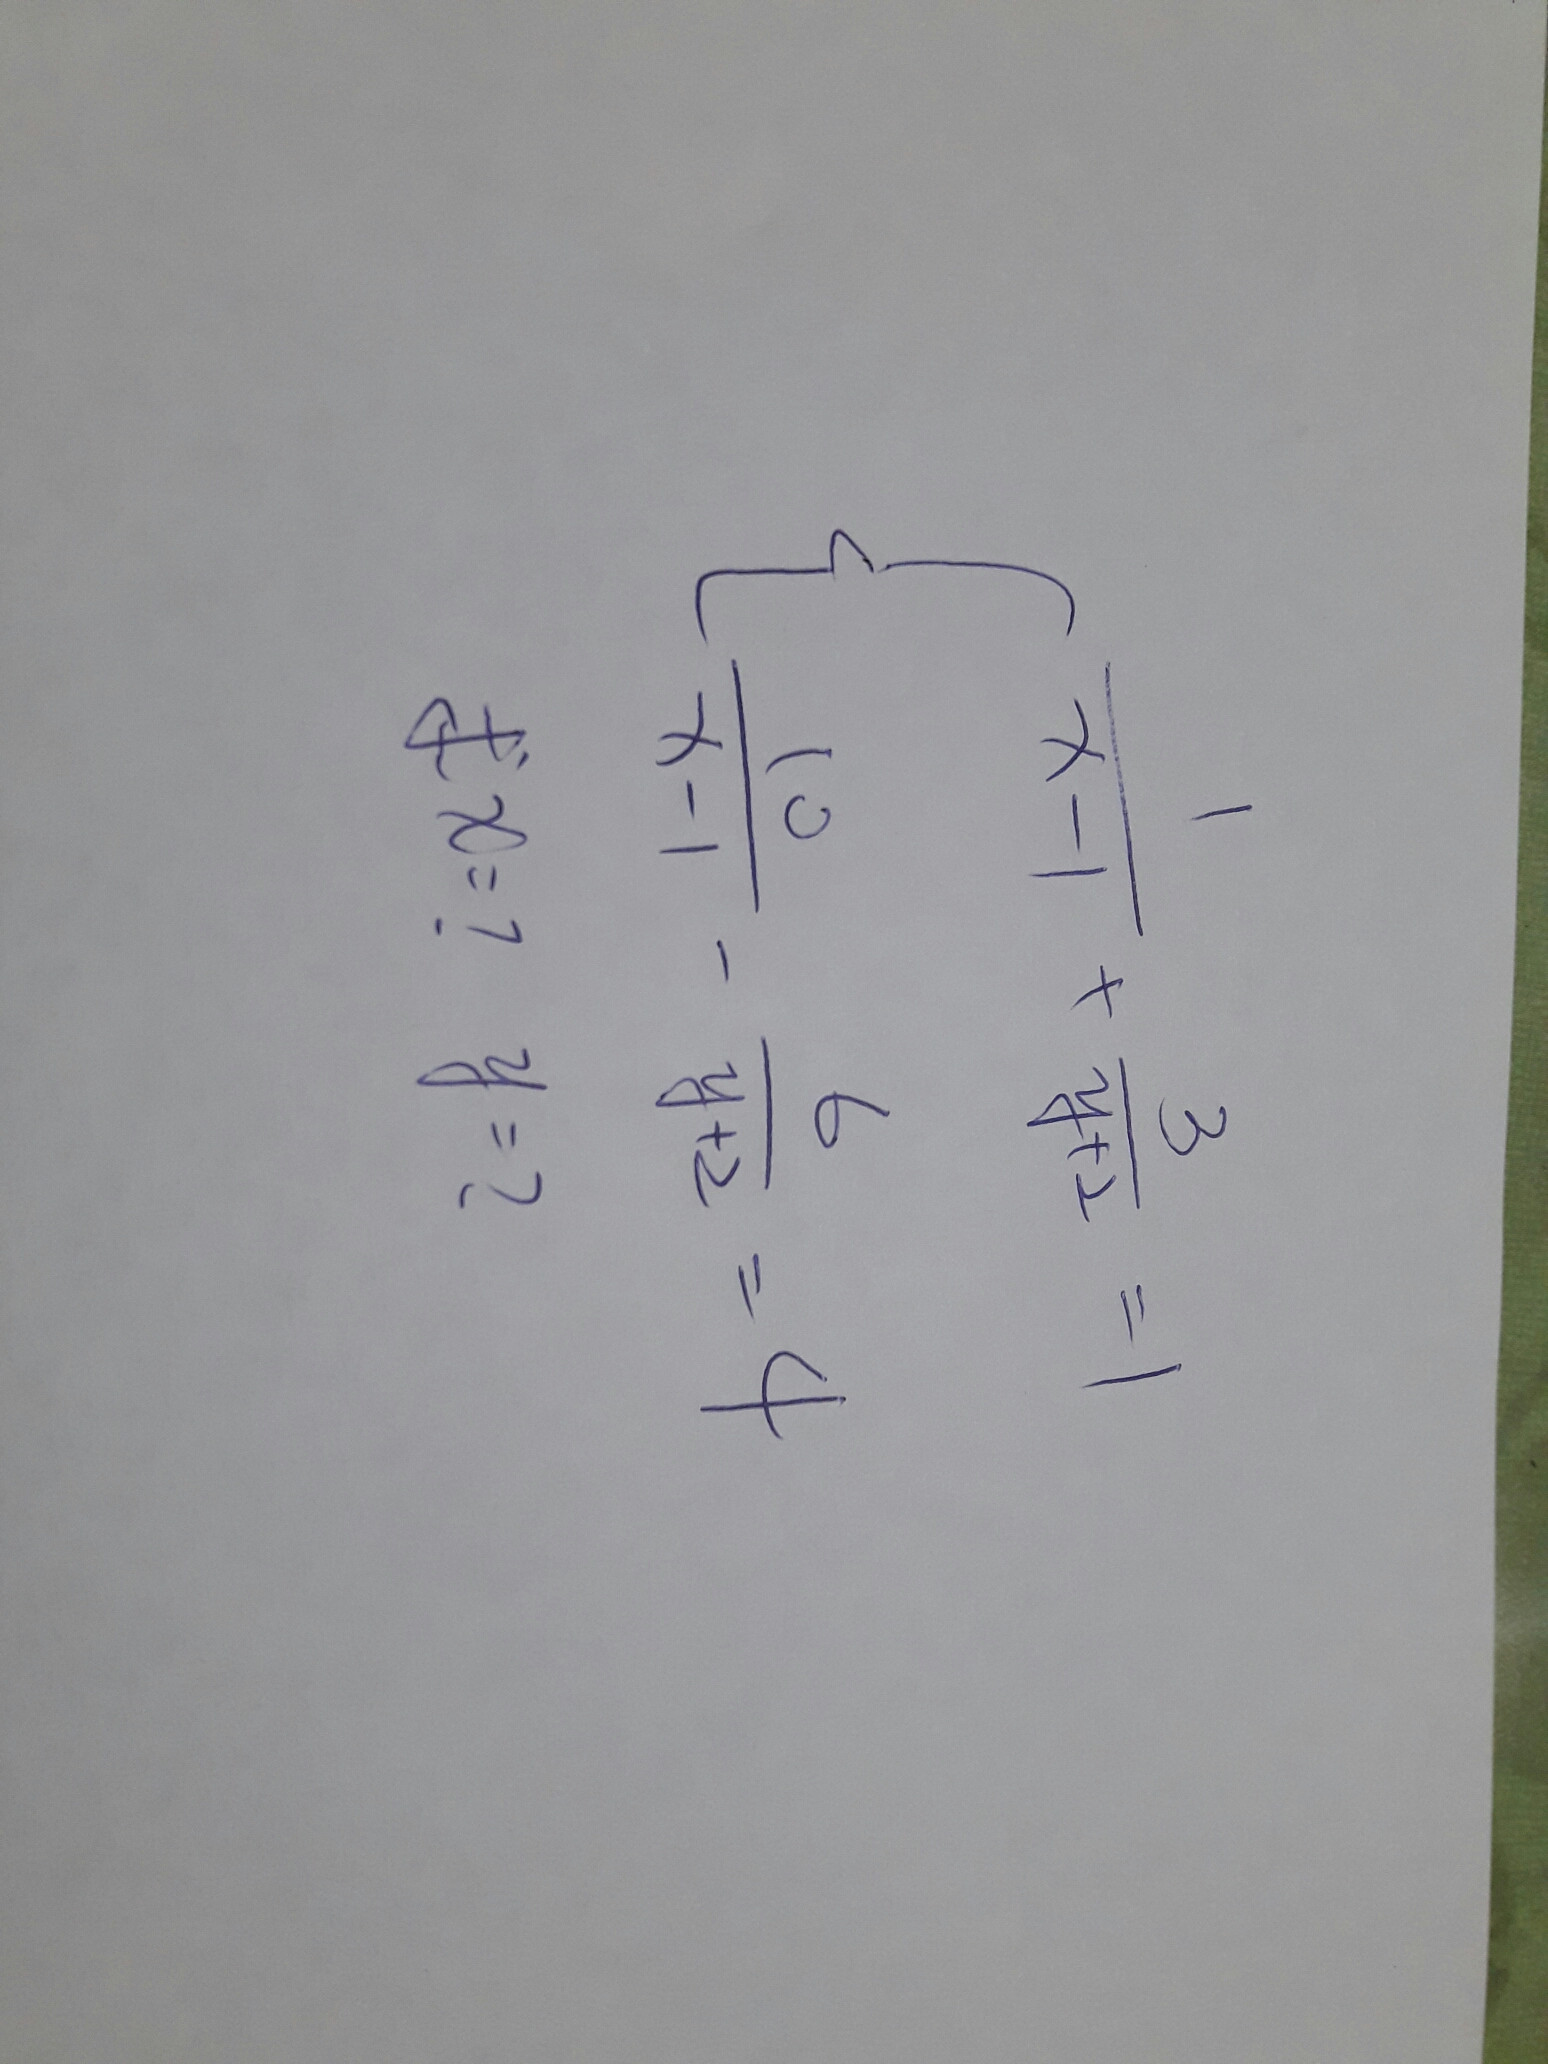 1/(x-1) + 3/(y+2) = 1
10/(x-1) - 6/(y+2) = 4
求x=? y=?